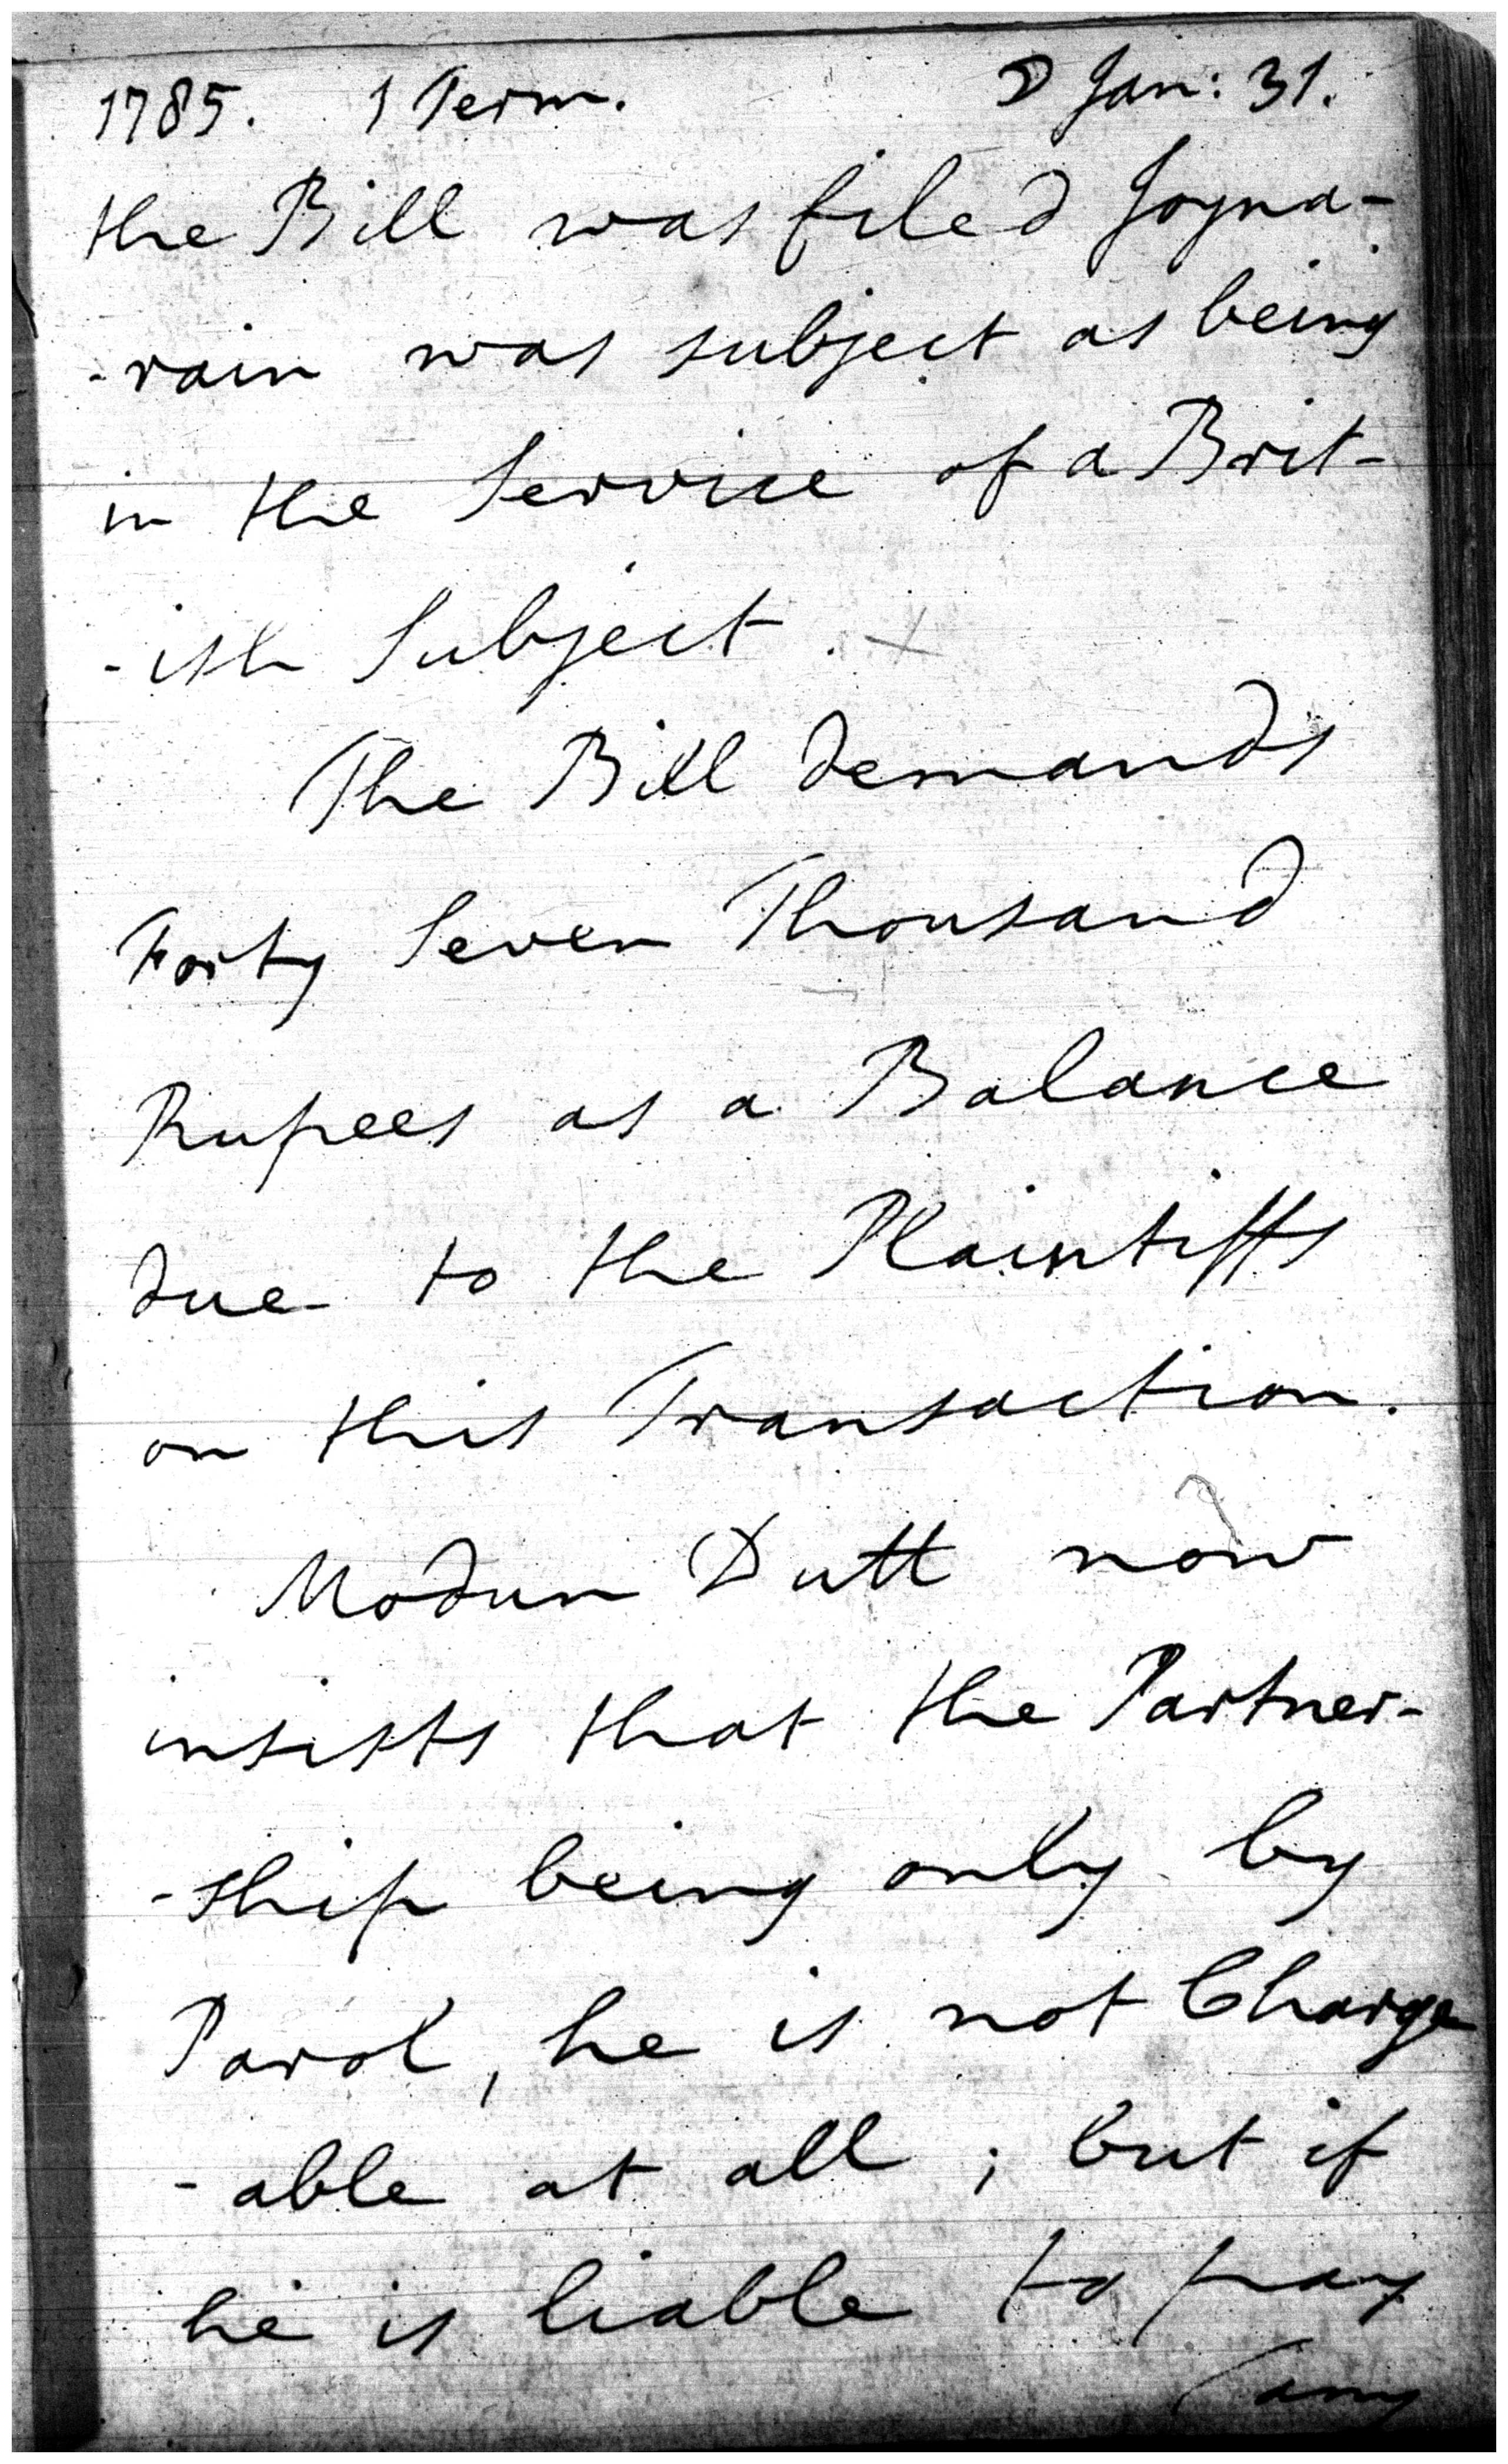 1785. 1 Term. ☽ Jan: 31.
the Bill was filed Jogna-
-rain was subject as being
in the Service of a Brit-
-ish Subject.
The Bill demands
Forty Seven Thousand
Rupees as a Balance
due to the Plaintiffs
on this Transaction.
Modun Dutt now
insists that the Partner-
-ship being only by
Parol, he is not Charge
-able at all; but if
he is liable to pay
any